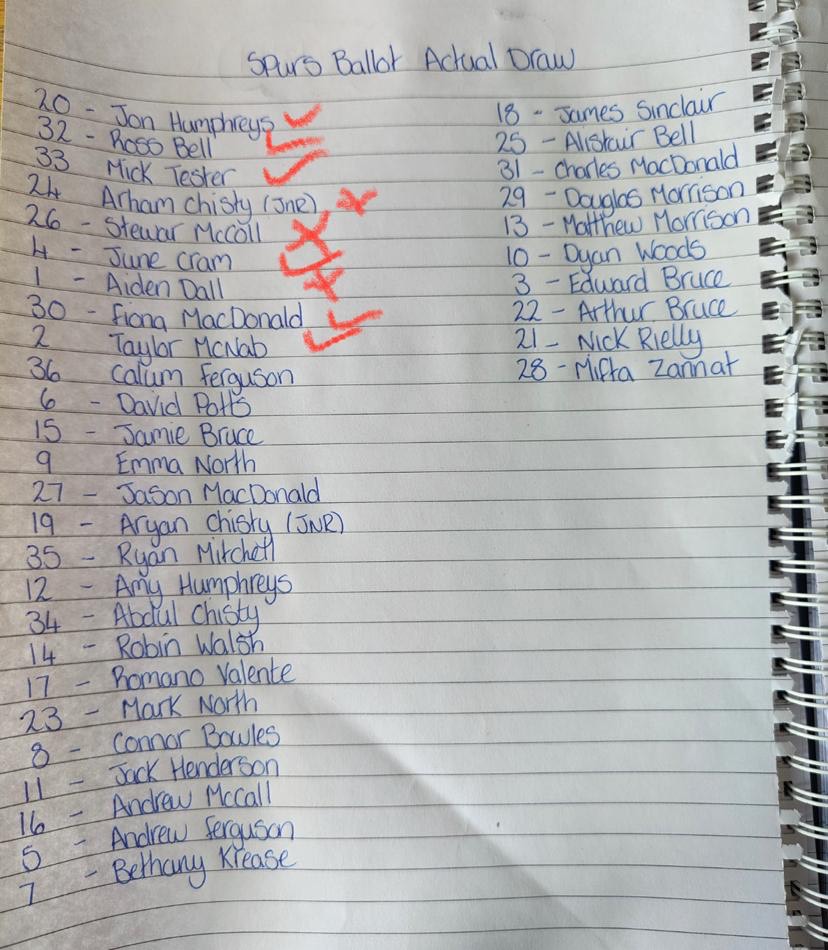 Spurs Ballot Actual Draw
20 - Jon Humphreys
32 - Ross Bell
33 Mick Tester
24 Arham Chisty (JNR)
26 - Stewar McColl
4 - June Cram
1 - Aiden Dall
30 - Fiona MacDonald
2 Taylor McNab
36 Calum Ferguson
6 - David Potts
15 - Jamie Bruce
9 Emma North
27 - Jason MacDonald
19 - Aryan Chisty (JNR)
35 - Ryan Mitchell
12 - Amy Humphreys
34 - Abdul Chisty
14 - Robin Walsh
17 - Romano Valente
23 - Mark North
8 - Connor Bowles
11 - Jack Henderson
16 - Andrew McCall
5 - Andrew Ferguson
7 - Bethany Krease
18 - James Sinclair
25 - Alistair Bell
31 - Charles MacDonald
29 - Douglas Morrison
13 - Matthew Morrison
10 - Dyan Woods
3 - Edward Bruce
22 - Arthur Bruce
21 - Nick Rielly
28 - Mifta Zannat